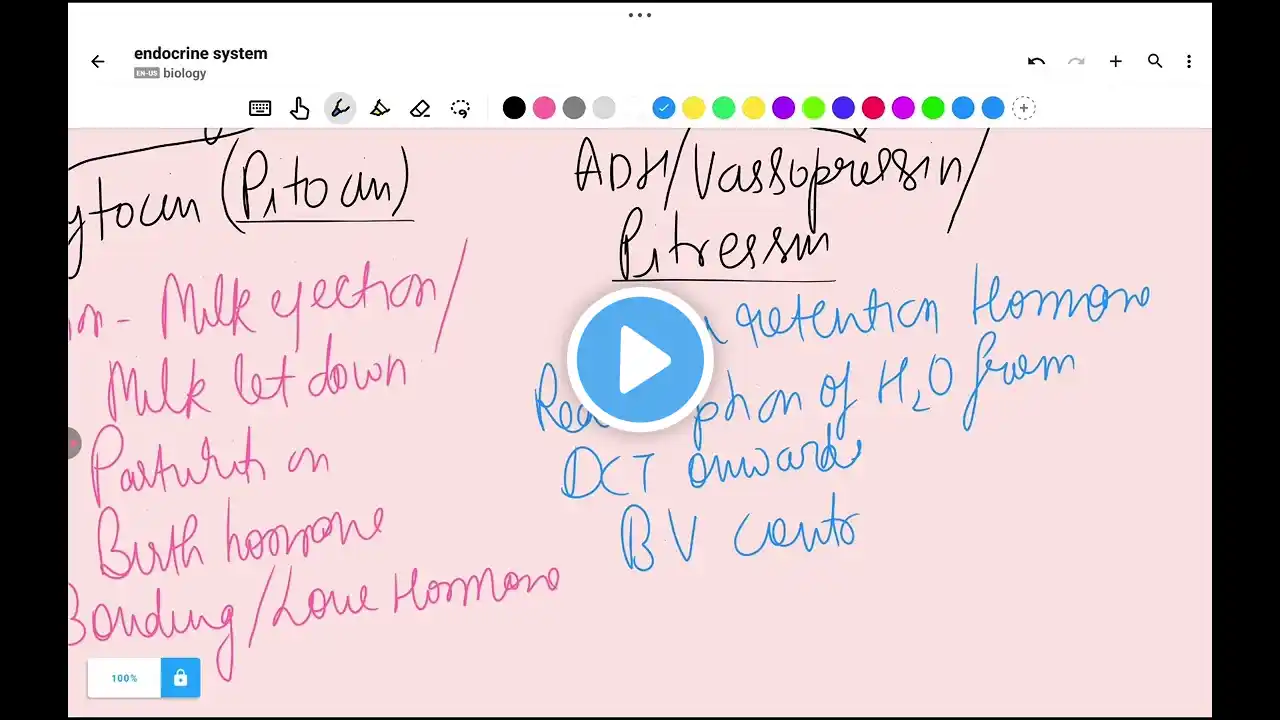 endocrine system
EN-US biology
ytocin (Pitocin)
ADH/Vassopressin/
Pitressin
on- Milk ejection/
Milk let down
Parturition
Birth hormone
Bonding/Love Hormone
retention Hormone
ption of H2O from
DCT onwards
BV contr
100%